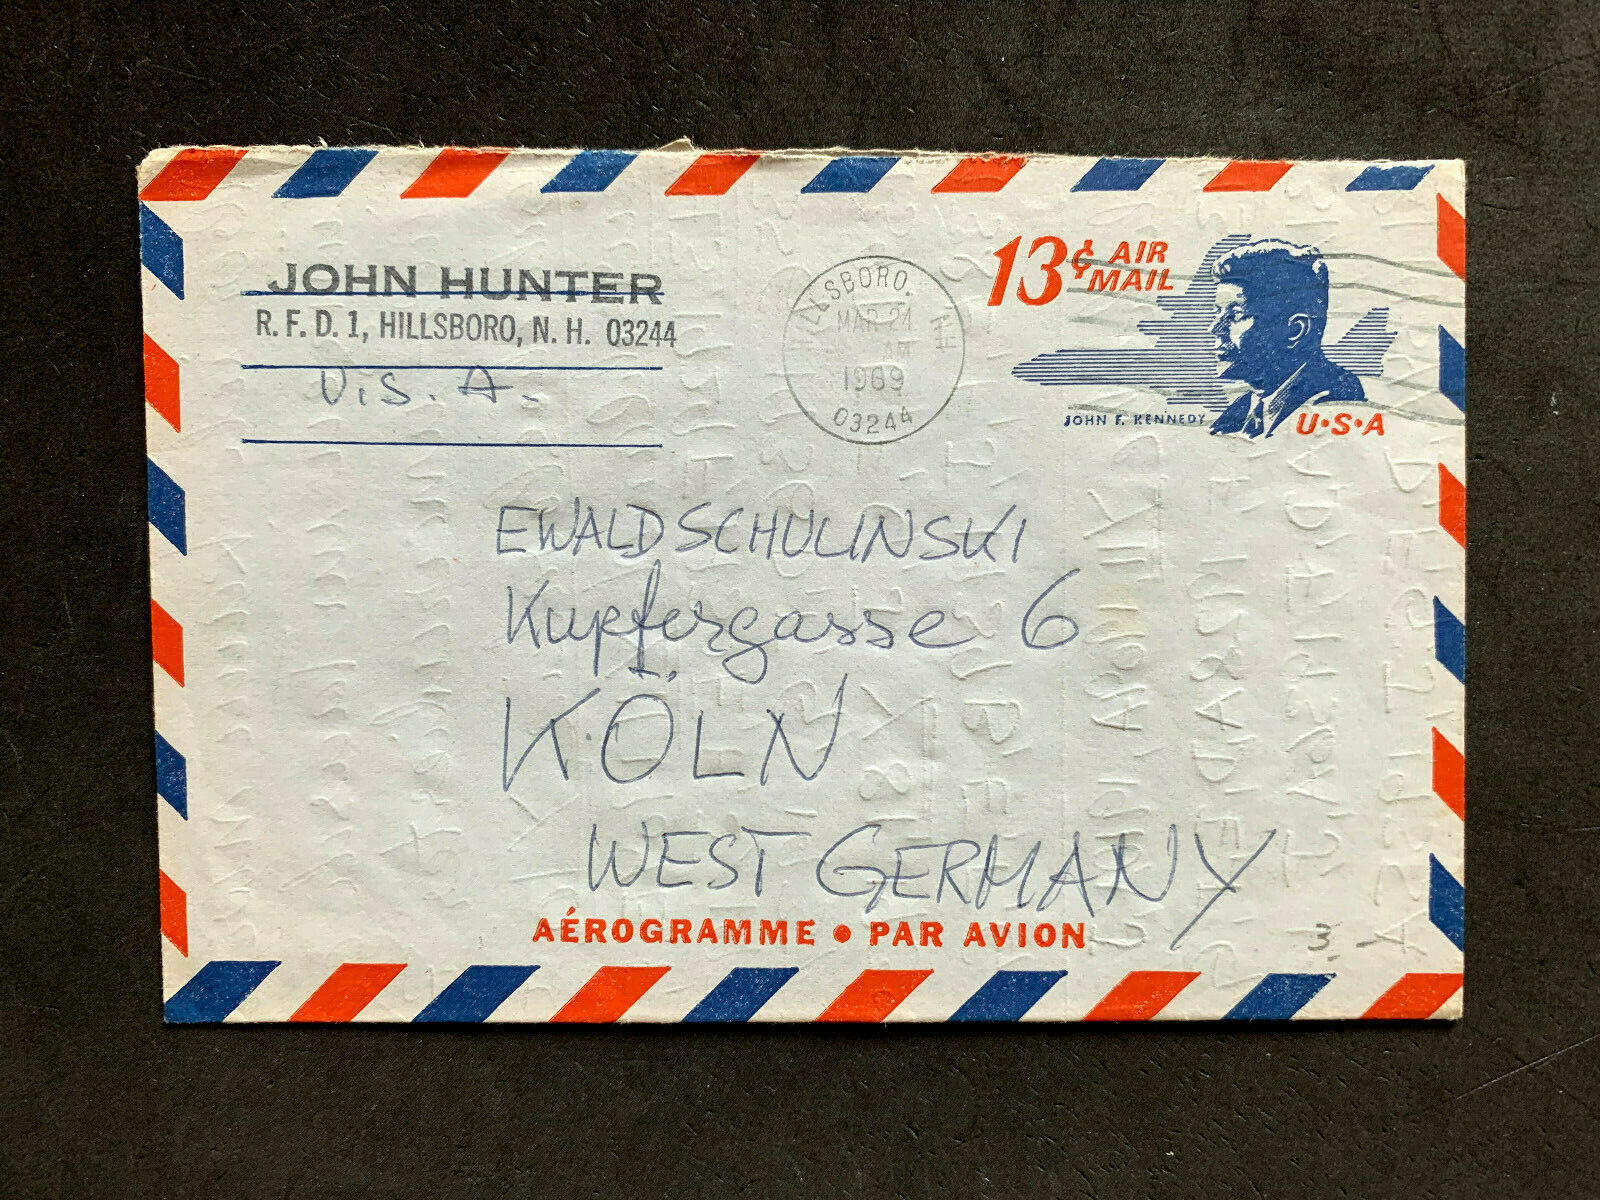 JOHN HUNTER
R. F. D. 1, HILLSBORO, N. H. 03244
U.S.A.
HILLSBORO. NH
MAR 24
AM
1969
03244
13¢ AIR MAIL
JOHN F. KENNEDY
U·S·A
EWALD SCHULINSKI
Kupfergasse 6
KÖLN
WEST GERMANY
AÉROGRAMME • PAR AVION
3.-